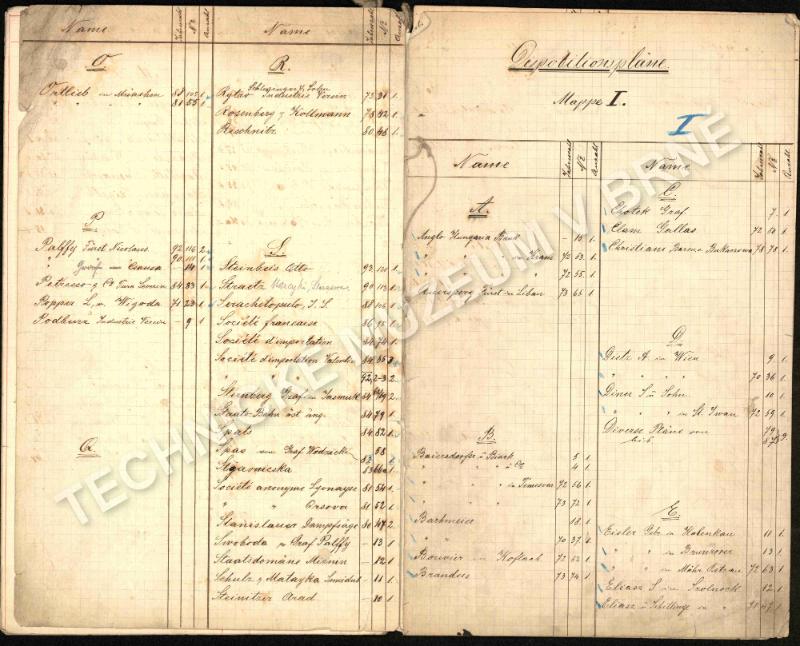 Name
Jahrzahl
No
Anzahl
Name
Jahrzahl
No
Anzahl
O.
Ortlieb in München 81 102 1
81 55 1
P
Palffy Fürst Nicolaus 92 116 2
90 111 1
" in - 14 1
Petrescu & Co Turn Severin 84 83 1
Pepper L. Wigoda 71 23 1
Podhurz Industrie Verein - 9 1
Q.
R.
Schlesinger & Sohn
Rytar Industrie Verein 73 31 1.
Rosenberg & Kollmann 78 42 1.
Reschnitz 80 46 1.
S.
Steinbeis Otto 93 120 1.
Straetz 90 113 1.
Serachitopulo, J. S. 88 106 1.
Société francaise 86 95 1.
Société d'importation 84 74 1.
Société d'importation 84 86 2
" " 92 2-3 2
Sternberg Graf in
Staats-Bahn öst ung. 84 79 1.
Spats 84 82 1.
Spas von Graf Wodzicki - 58
82 2
83 66a 1
Société anonyme Lyonayse 81 54 1.
" " Orsova 81 52 1.
Stanislauer Dampfsäge 80 47 2
Swoboda & Graf Palffy - 13 1
Staatsdomäne - 12 1
Schulz & Matayka - 11 1
Steinitzer Arad - 10 1
Dispositionspläne.
Mappe I.
I
Name
Jahrzahl
No
Anzahl
Name
Jahrzahl
No
Anzahl
A.
Anglo Hungaria Bank - 15 1.
" " in 72 53 1.
" " 72 55 1.
Auersperg Fürst in Liban 73 65 1.
B.
Baiersdorf & Biach 5 1
" " & Co 4 1.
" " in Temesvar 72 56 1
" " 73 72 1
Bachmeier 18 1
" 70 37 1.
Bouvier in Köflach 72 52 1.
Brandeis 73 74 1.
C.
Chotek Graf 7 1.
Clam Gallas 72 14 1
Christiani Baron Bukowina 78 78 1.
D.
Dietz A. in Wien 9 1
" " 70 36 1
Diner S & Sohn 10 1
" " in St. Ivan 72 59 1
Diverse Pläne von 79
bis 87
E.
Eisler Gebr. in Hohenau 11 1
" " in 13 1.
" " in Mähr. Ostrau 72 63 1
Eliasz S. in Szolnock 12 1
Eliasz & Schilling in " 71 47 1.
TECHNICKÉ MUZEUM V BRNĚ